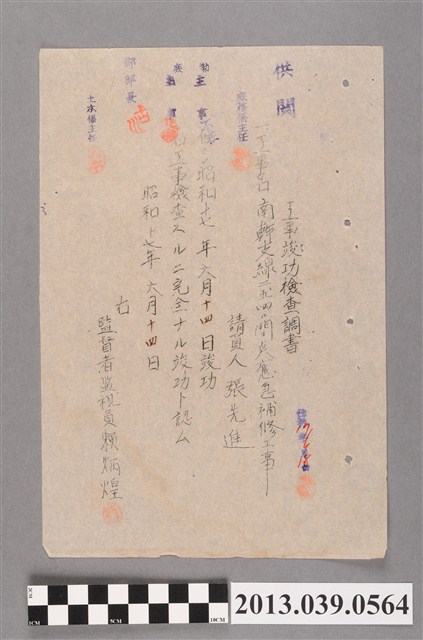 供閱
工事竣功檢查調書
一、工事名 南幹支線二五四間点應急補修工事
請負人 張先進
昭和十七年六月十四日竣功
右工事檢查スルニ完全ナル竣功ト認ム
昭和十七年六月十四日
右
監督者監視員賴炳煌
庶務係主任
主事
部長
土木係主任
1CM
5CM
10 CM
2013.039.0564